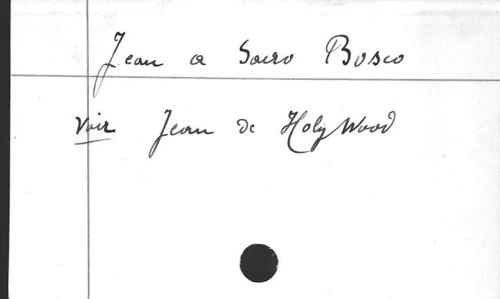 Jean a Sacro Bosco
voir Jean de Holy Wood